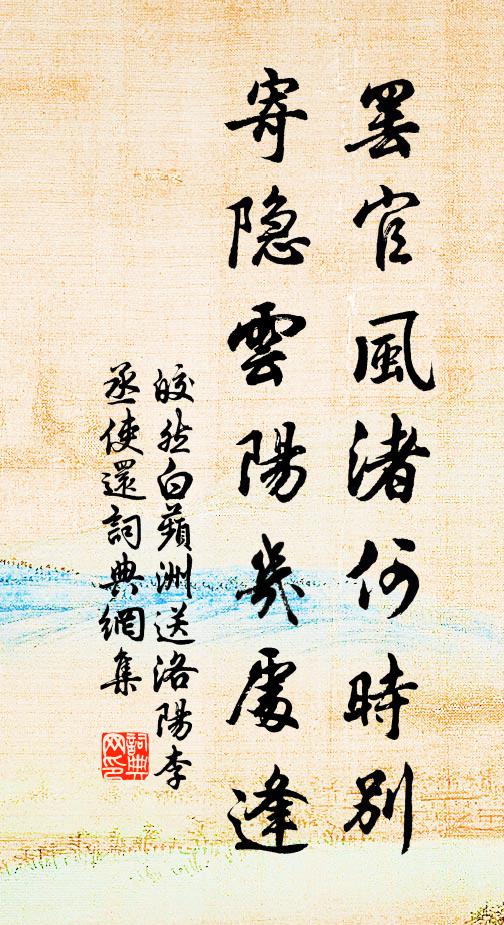 罷官風渚何時別
寄隐雲陽幾處逢
皎然白蘋洲送洛陽李
丞使還詞典網集
詞典
网印